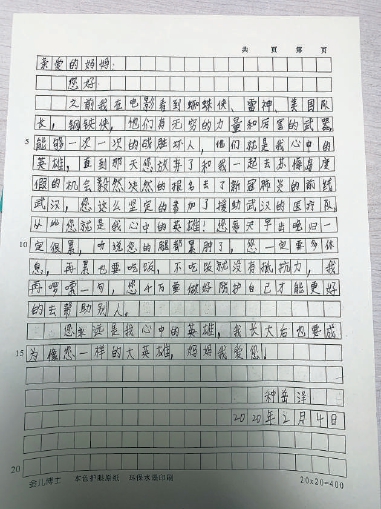 共 页 第 页
亲爱的妈妈:
您好!
之前我在电影看到蜘蛛侠、雷神、美国队
长,钢铁侠,他们有无穷的力量和厉害的武器,
5
能够一次一次的战胜坏人,他们就是我心中的
英雄,直到那天您放弃了和我一起去苏梅岛度
假的机会毅然决然的报名去了新冠肺炎的前线
武汉,您这么坚定的参加了援助武汉的医疗队,
从此您就是我心中的英雄!您每天早出晚归一
10
定很累,听说您的腿都累肿了,您一定要多休
息,再累也要吃饭,不吃饭就没有抵抗力,我
再唠叨一句,您千万要做好防护自己才能更好
的去帮助别人。
您永远是我心中的英雄,我长大后也要成
15
为像您一样的大英雄,妈妈我爱您。
2020年2月4日
20
20x20=400